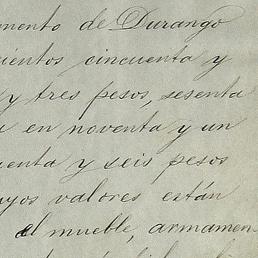 mento de Durango
cientos cincuenta y
y tres pesos, sesenta
en noventa y un
cuenta y seis pesos
cuyos valores están
el mueble, armamen-